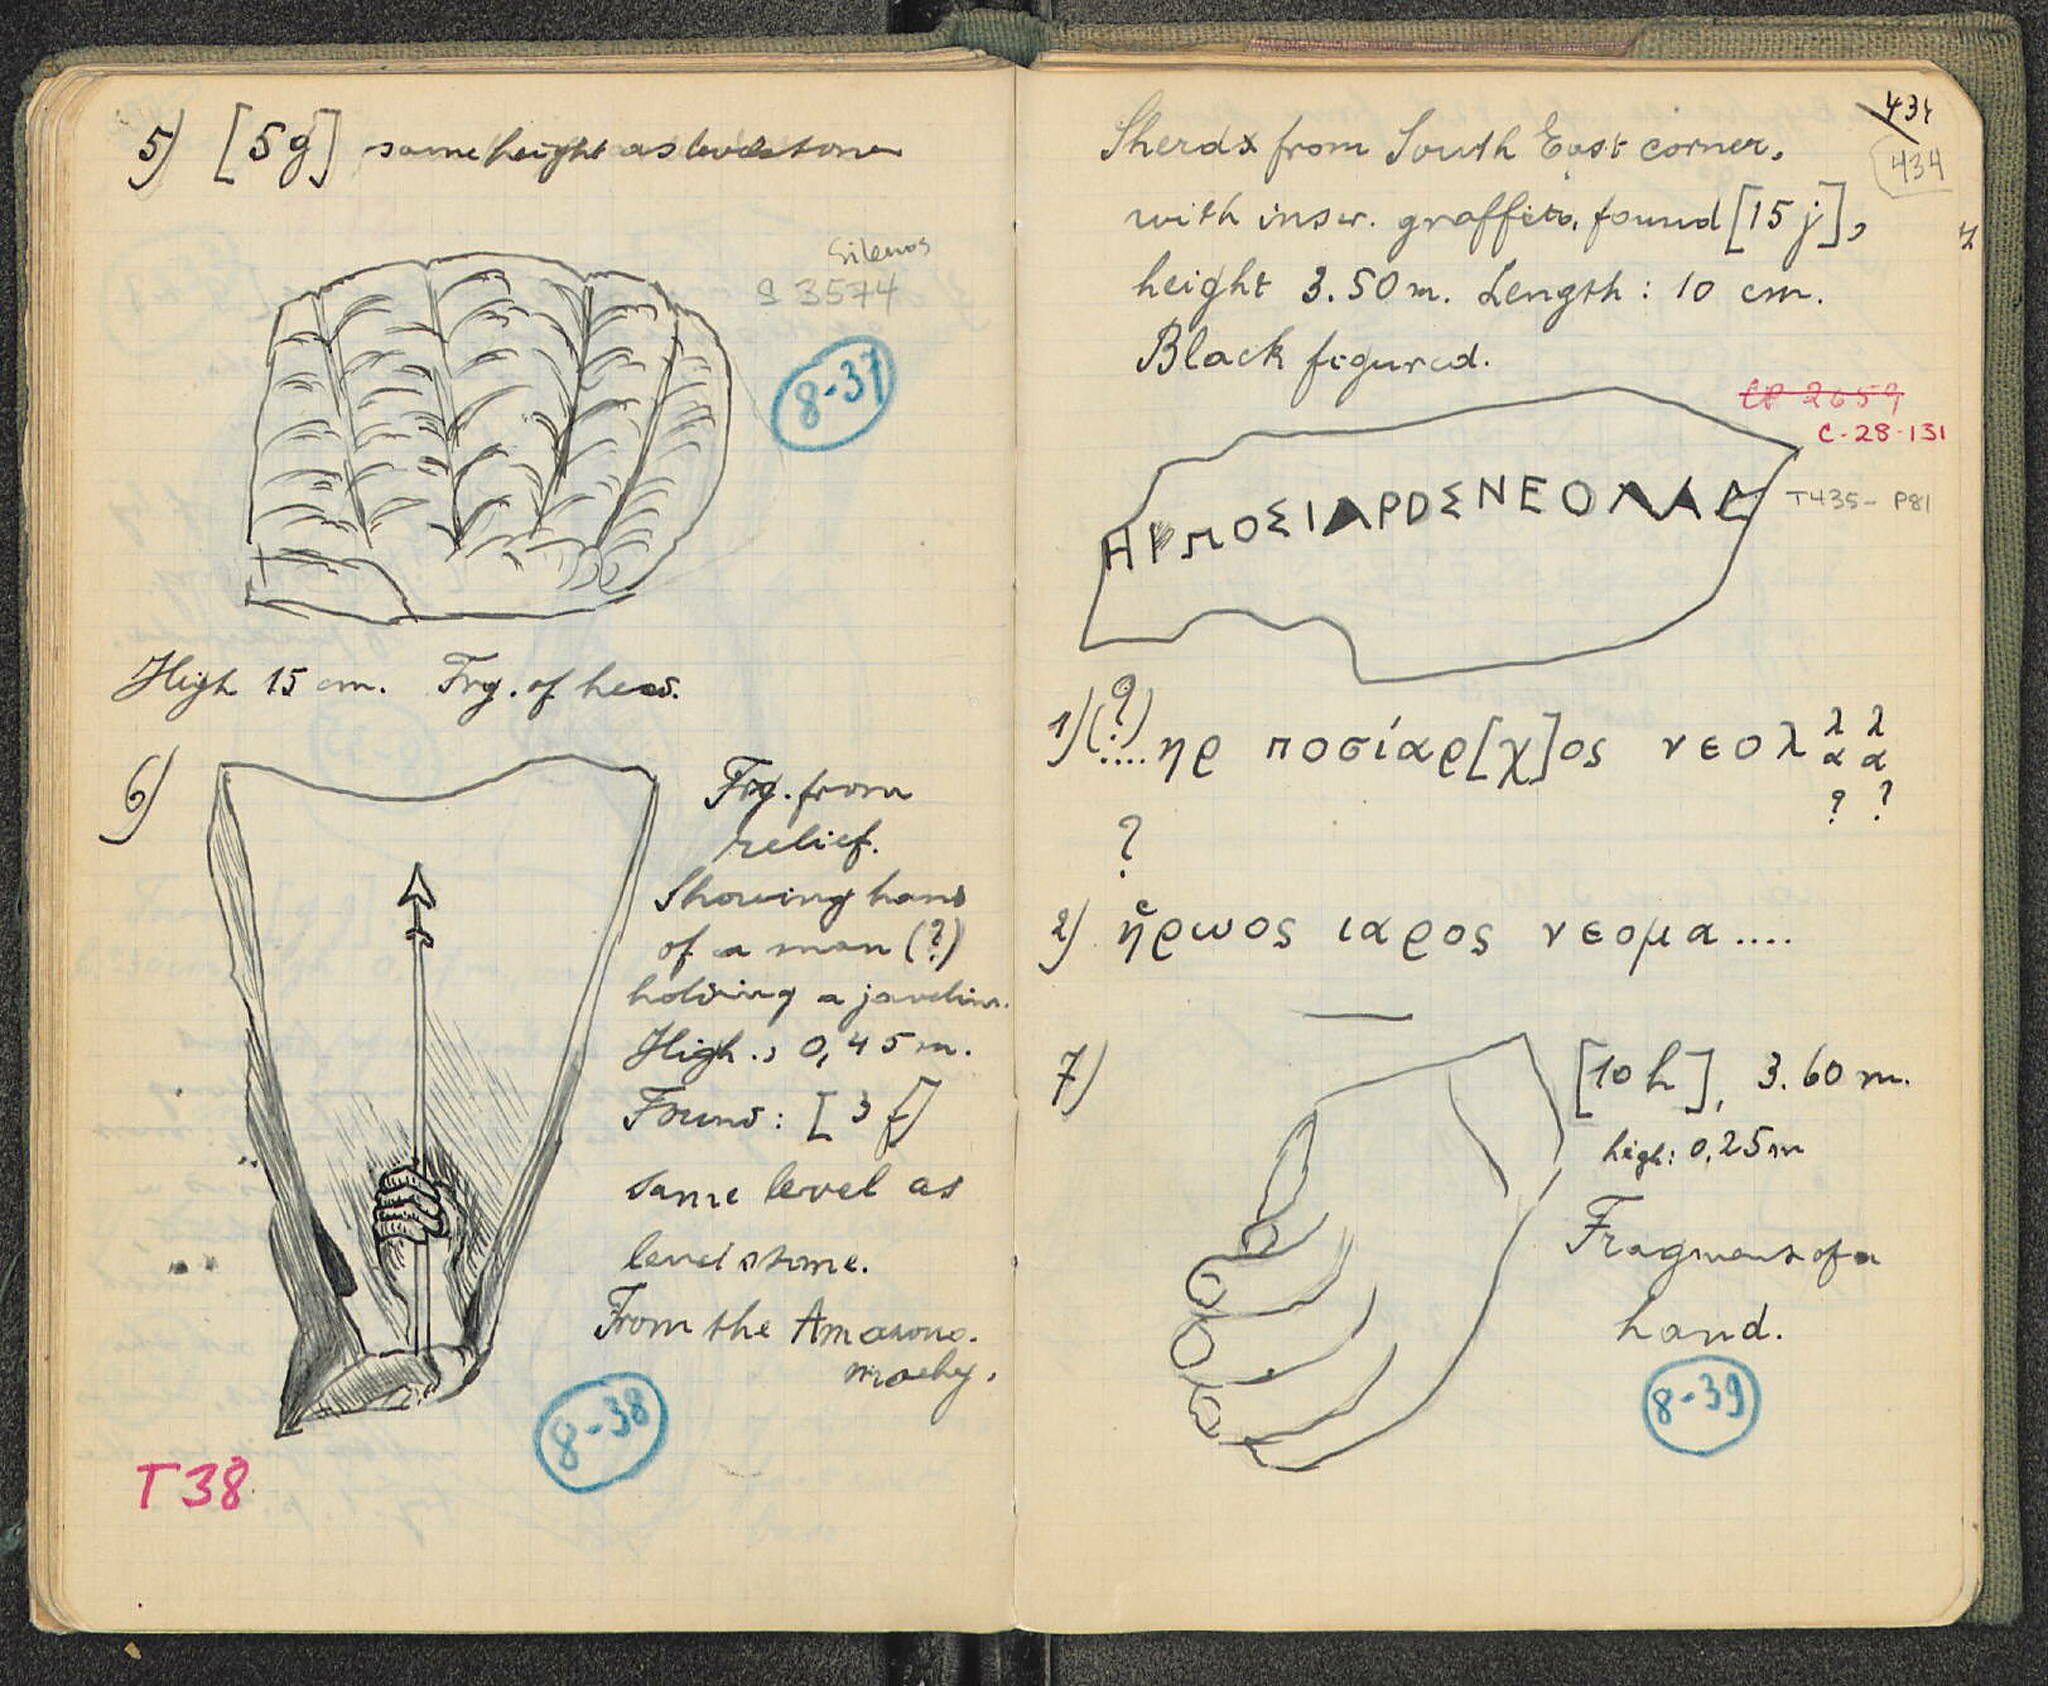 5) [5g] same height as levelstone
Silenos
S 3574
8-37
High 15 cm. Frg. of head.
6)
Frg. from
relief.
Showing hand
of a man (?)
holding a javelin.
High.: 0,45 m.
Found: [3 f]
same level as
levelstone.
From the Amazono-
machy.
8-38
T 38
434
434
Sherds from South East corner,
with inscr. graffito, found [15 j],
height 3.50 m. Length: 10 cm.
Black figured.
CP 2659
C-28-131
T435- P81
1) (?) ....ηρ ποσίαρ[χ]ος νεολ λα? λα?
?
2) ἥρωος ιαρος νεομα....
7)
[10 h], 3.60 m.
high: 0,25 m
Fragment of a
hand.
8-39